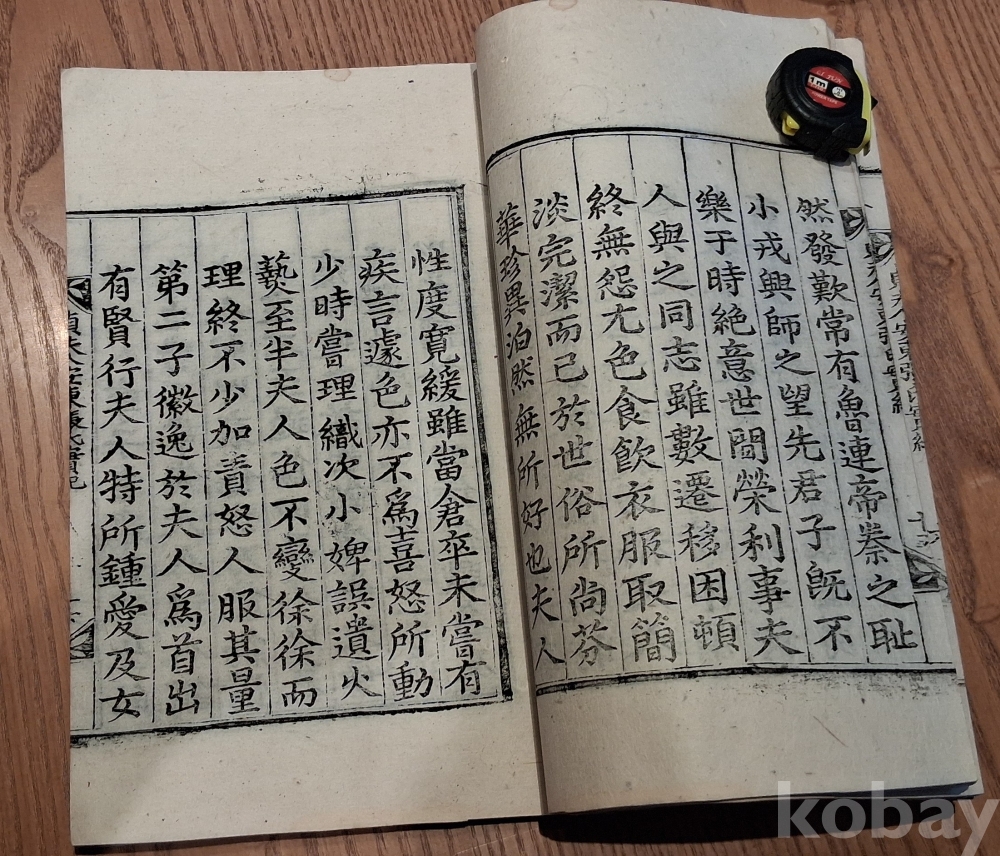 然發歎常有魯連帝秦之耻
小戎興師之望先君子旣不
樂于時絶意世間榮利事夫
人與之同志雖數遷移困頓
終無怨尤色食飮衣服取簡
淡完潔而已於世俗所尚芬
華珍異泊然無所好也夫人
性度寛緩雖當倉卒未嘗有
疾言遽色亦不爲喜怒所動
少時嘗理織次小婢誤遺火
爇至半夫人色不變徐徐而
理終不少加責怒人服其量
第二子徽逸於夫人爲首出
有賢行夫人特所鍾愛及女
1m
kobay